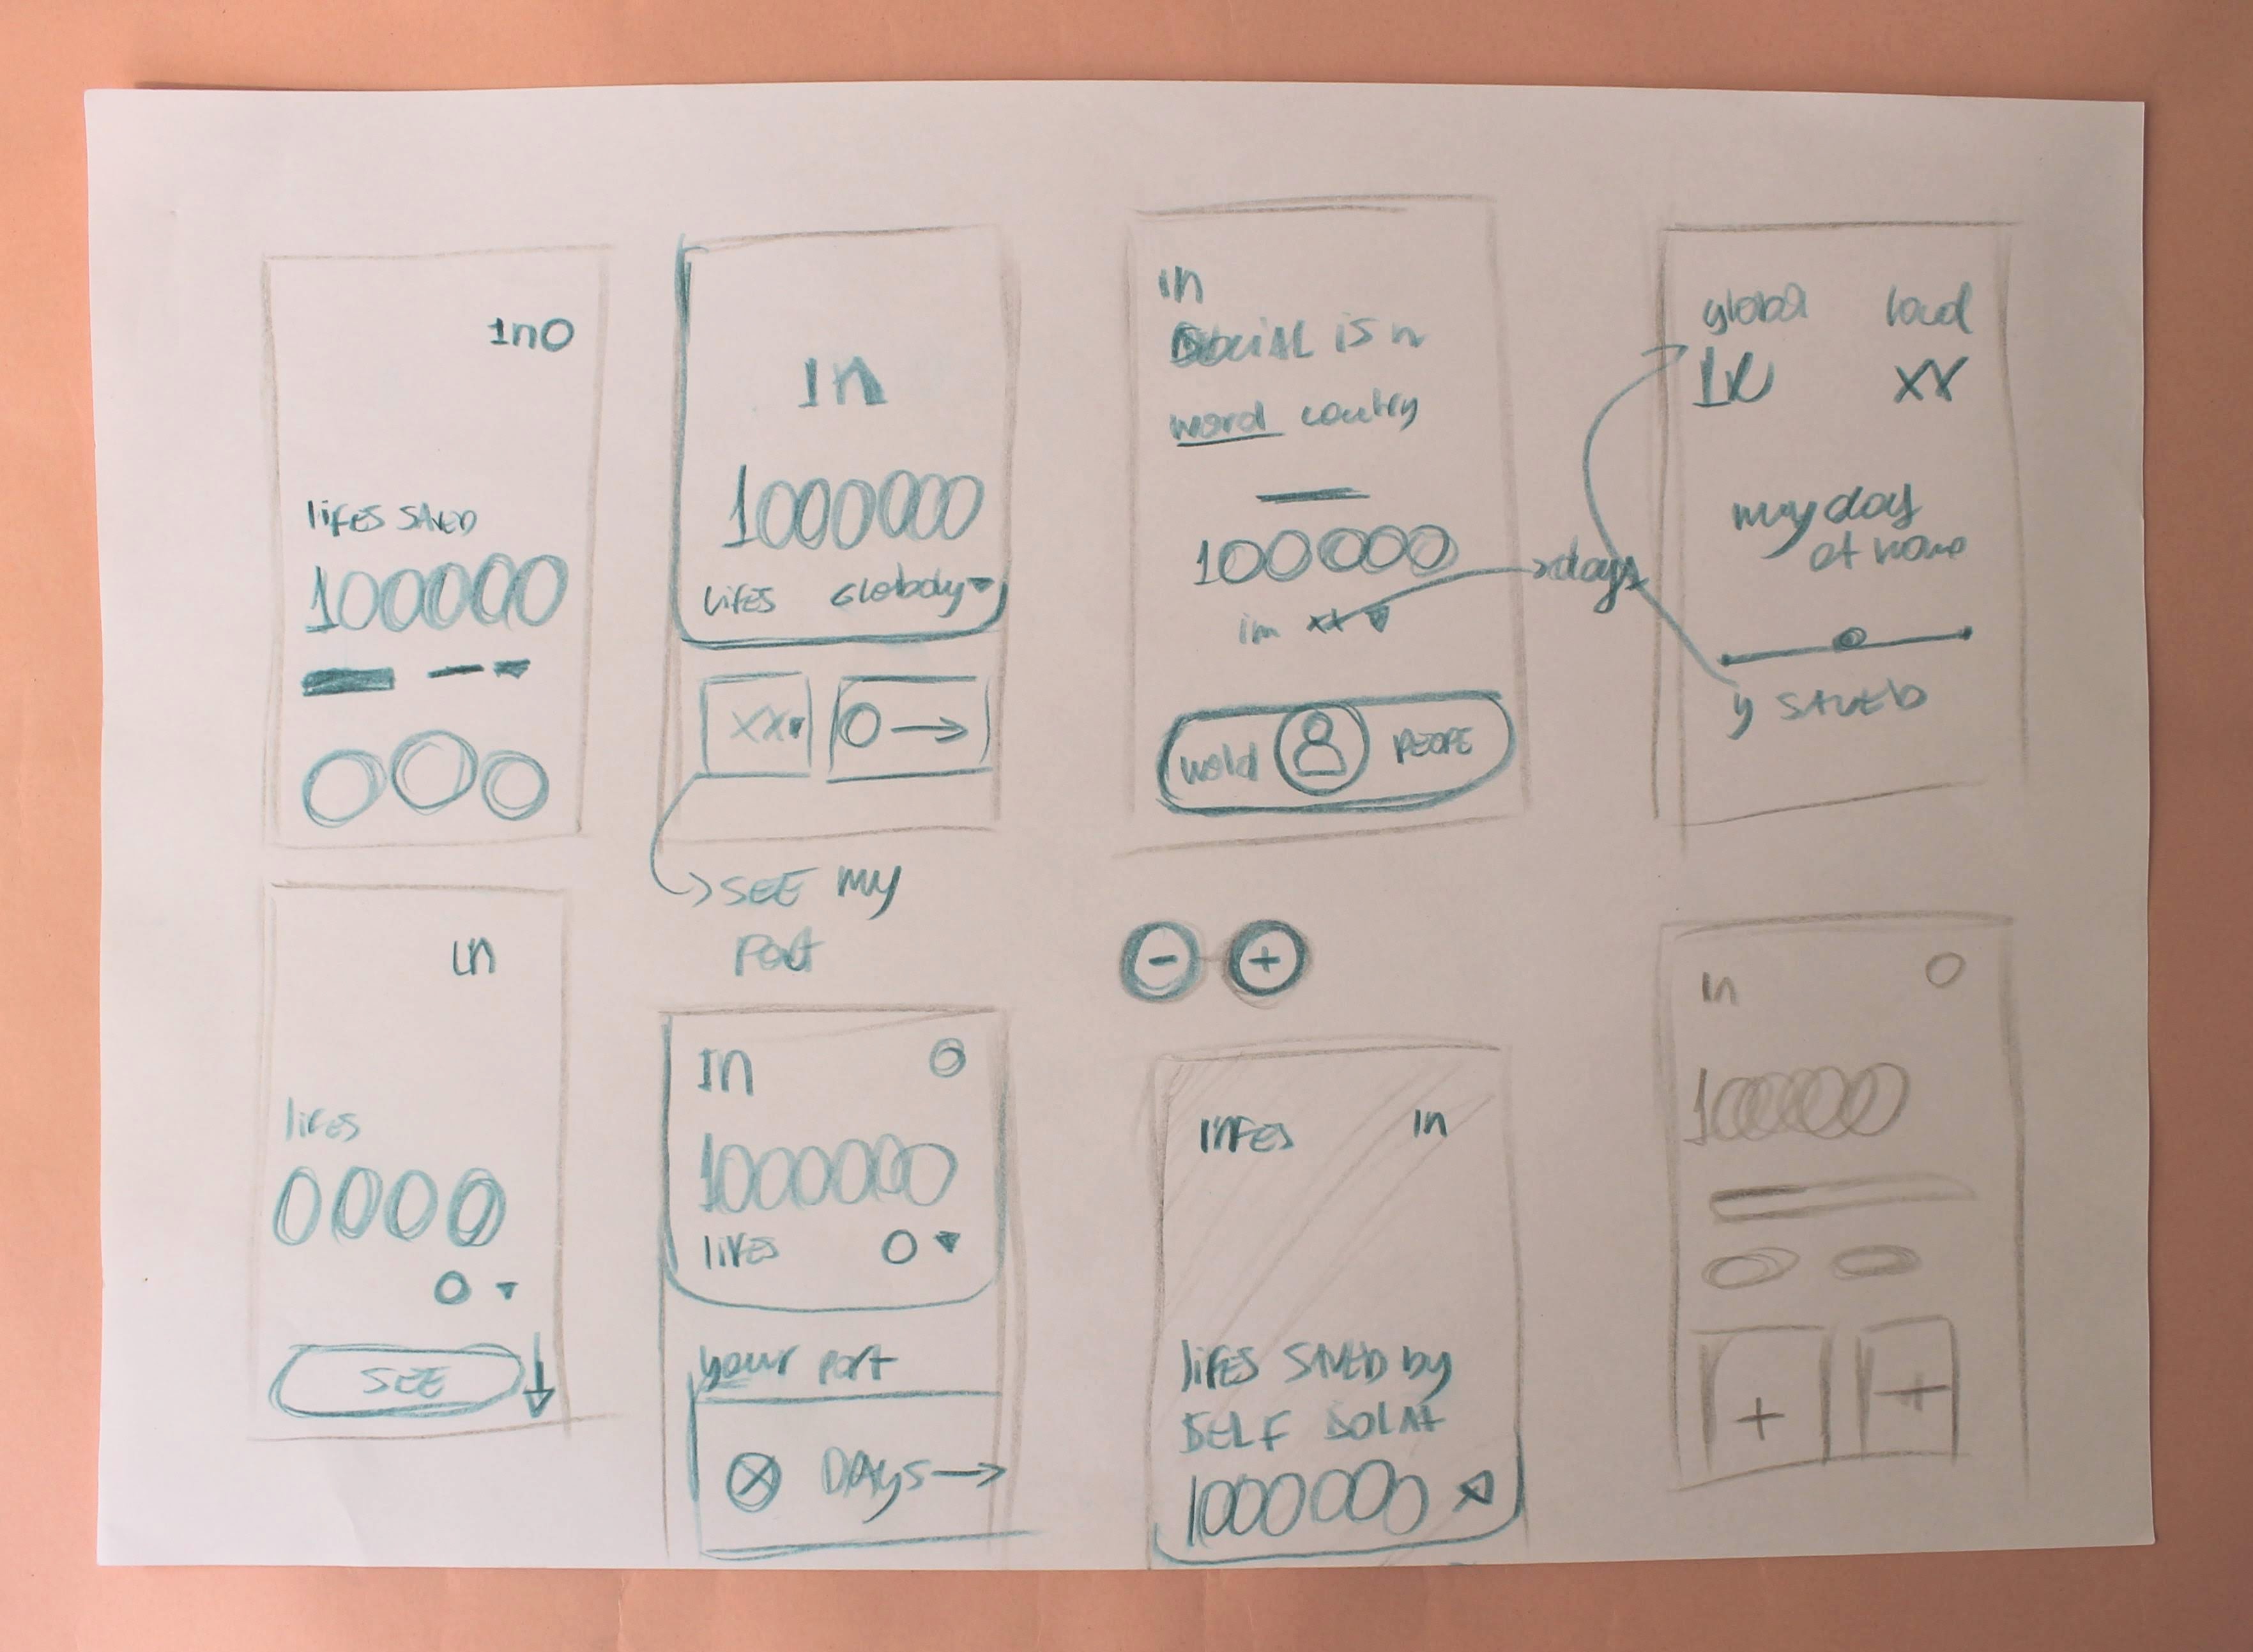 1n0
lifes SAVED
100000
1n
1000000
lifes Globaly
xx
SEE my
Part
in
is n
word country
100000
im xx
days
World PEOPE
global local
xx
my day
at home
y SAVEb
in
lifes
0000
SEE
1n
1000000
lifes
your part
DAYS
- +
lifes in
lifes SAVED by
SELF isolat
1000000
in
100000
+ +